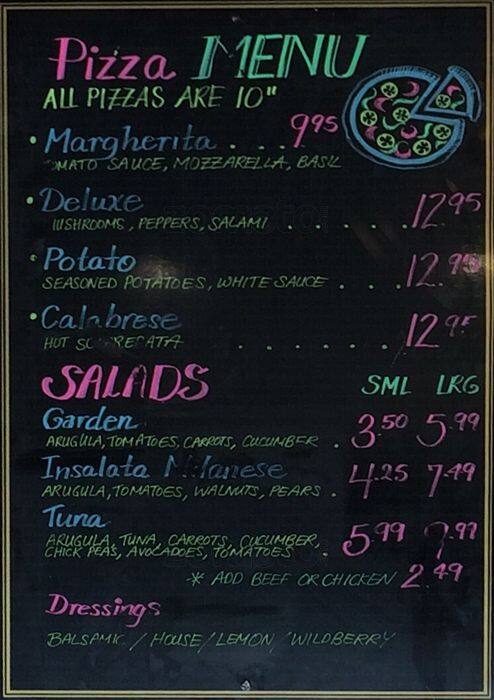 Pizza MENU
ALL PIZZAS ARE 10"
• Margherita . . . 9.95
TOMATO SAUCE, MOZZARELLA, BASIL
• Deluxe
MUSHROOMS, PEPPERS, SALAMI . . . . . 12.95
• Potato
SEASONED POTATOES, WHITE SAUCE . . . 12.95
• Calabrese
HOT SOPPRESATA . . . . . . 12.95
SALADS SML LRG
Garden
ARUGULA, TOMATOES, CARROTS, CUCUMBER . 3.50 5.99
Insalata Milanese
ARUGULA, TOMATOES, WALNUTS, PEARS . 4.25 7.49
Tuna
ARUGULA, TUNA, CARROTS, CUCUMBER,
CHICK PEAS, AVOCADOES, TOMATOES . 5.99 9.99
* ADD BEEF OR CHICKEN 2.49
Dressings
BALSAMIC / HOUSE / LEMON / WILDBERRY